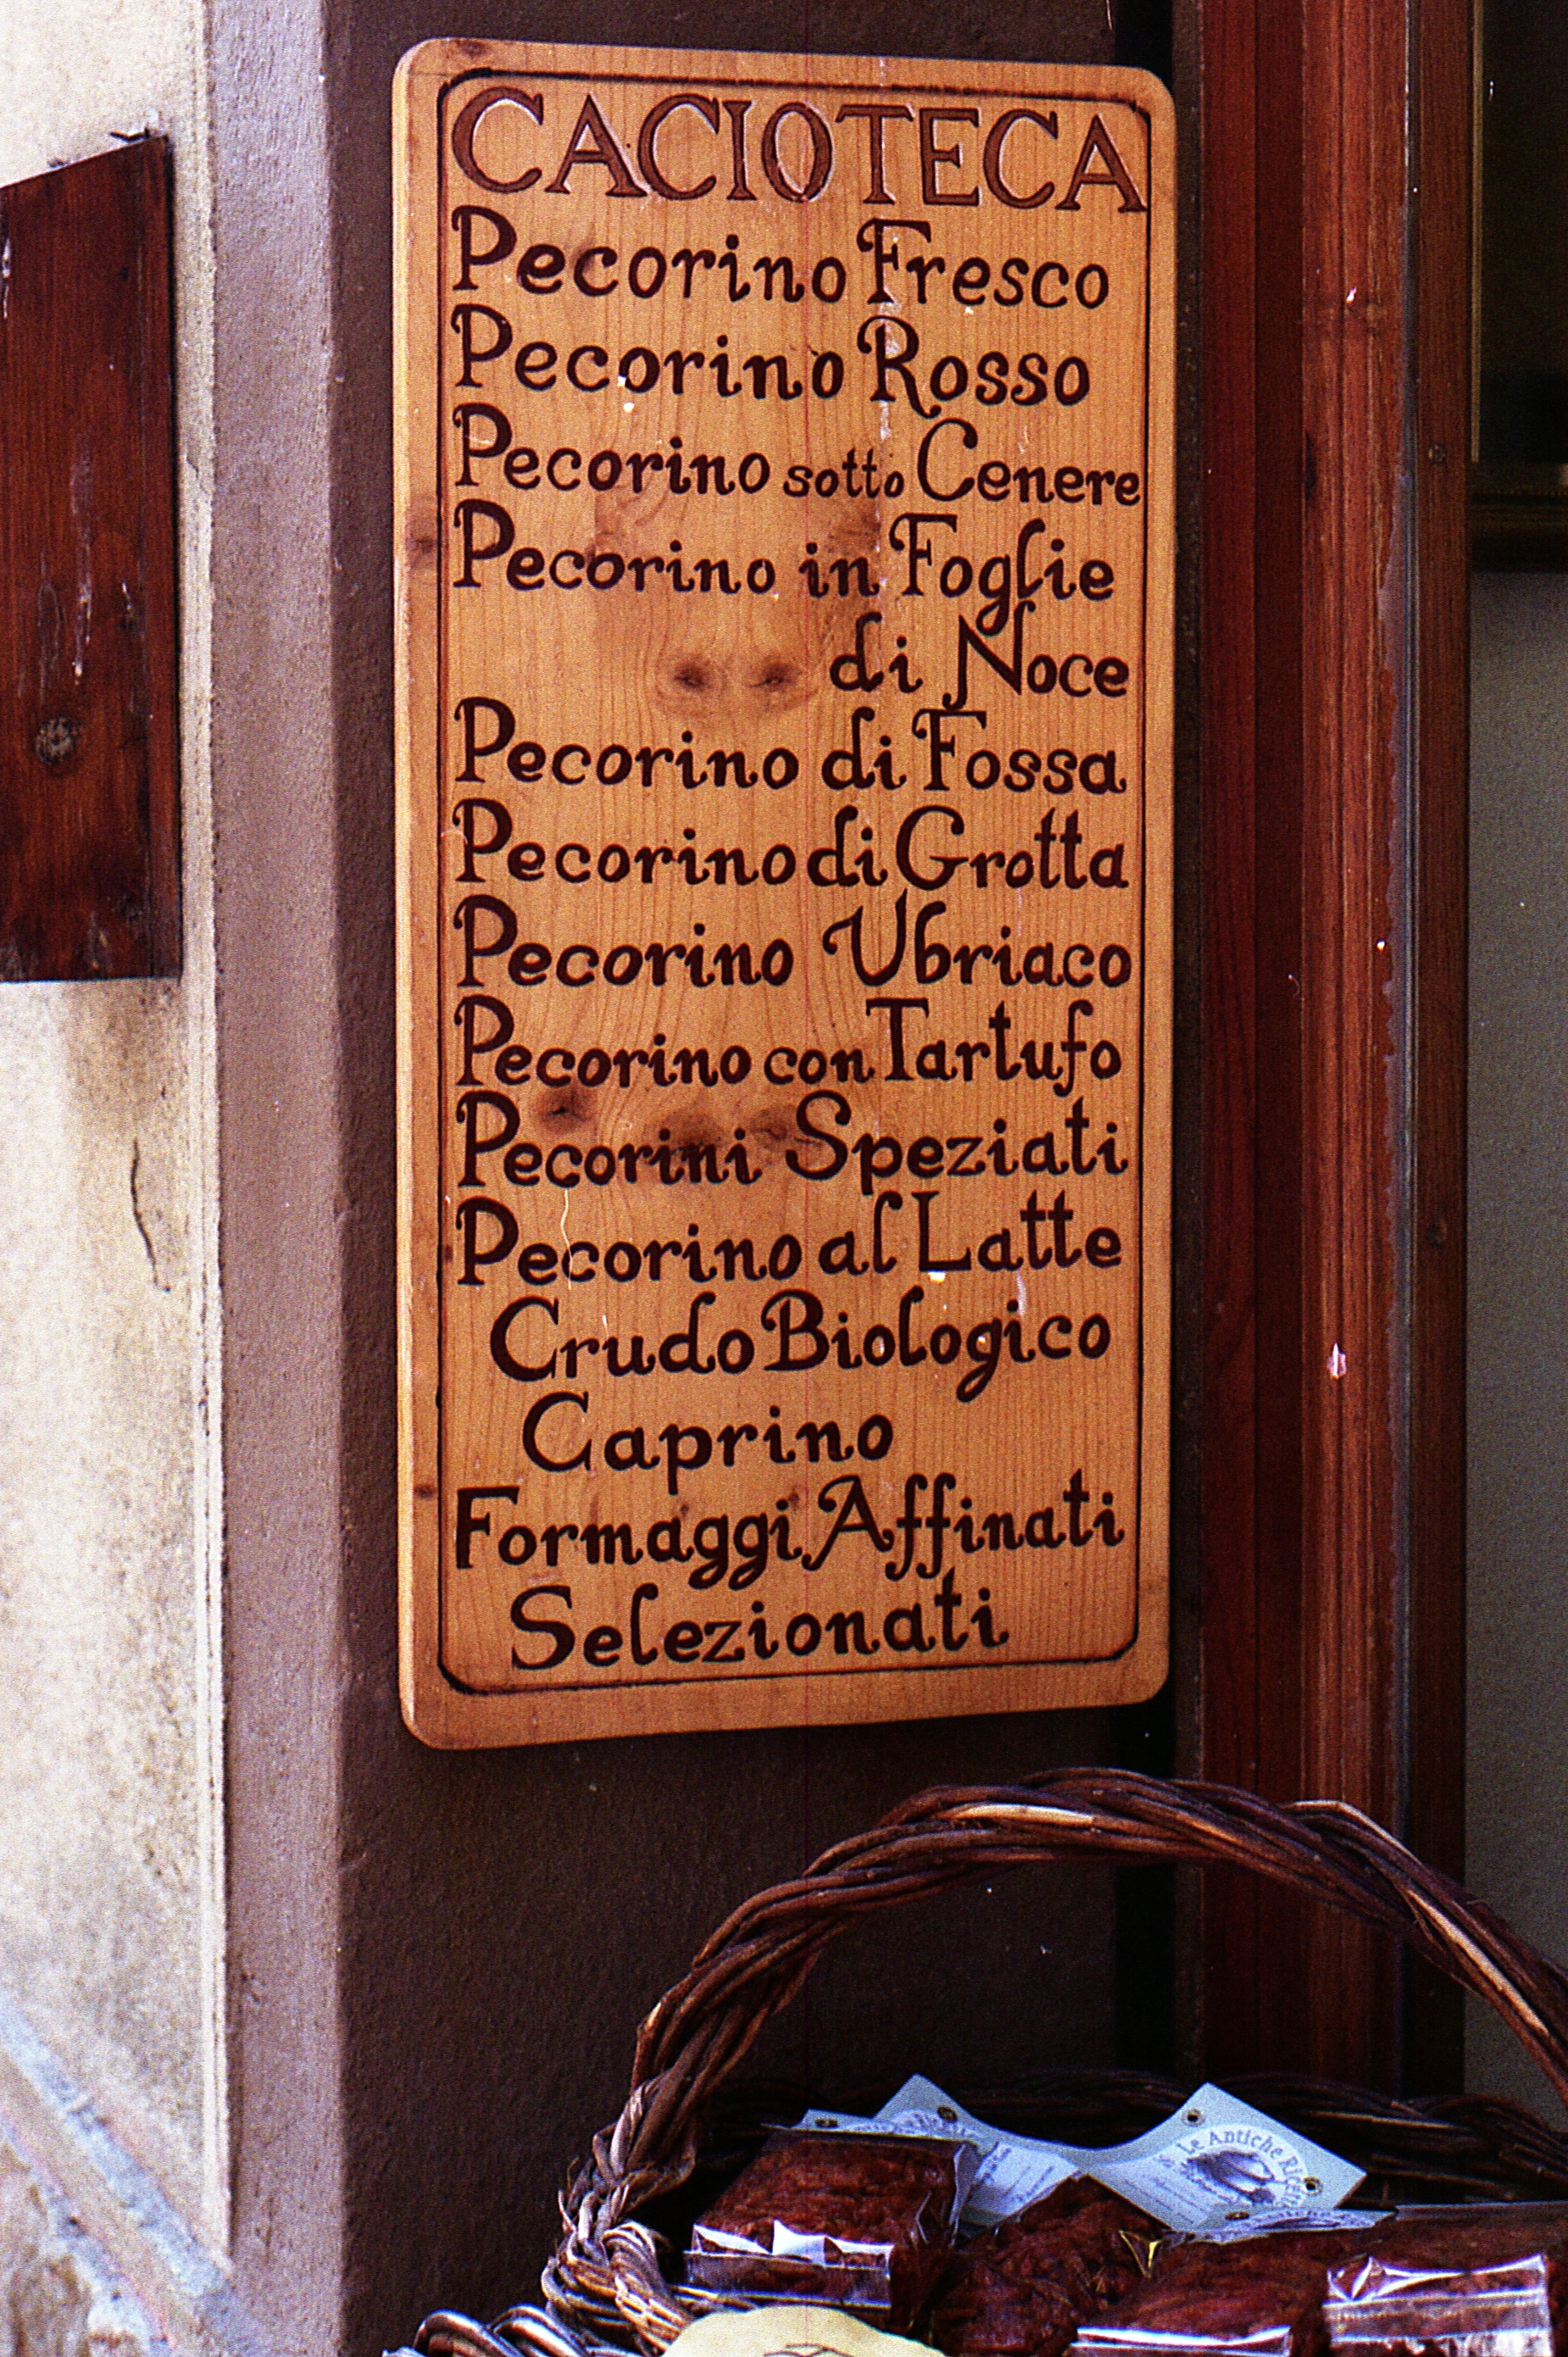 CACIOTECA
Pecorino Fresco
Pecorino Rosso
Pecorino sotto Cenere
Pecorino in Foglie
di Noce
Pecorino di Fossa
Pecorino di Grotta
Pecorino Ubriaco
Pecorino con Tartufo
Pecorini Speziati
Pecorino al Latte
Crudo Biologico
Caprino
Formaggi Affinati
Selezionati
Le Antiche